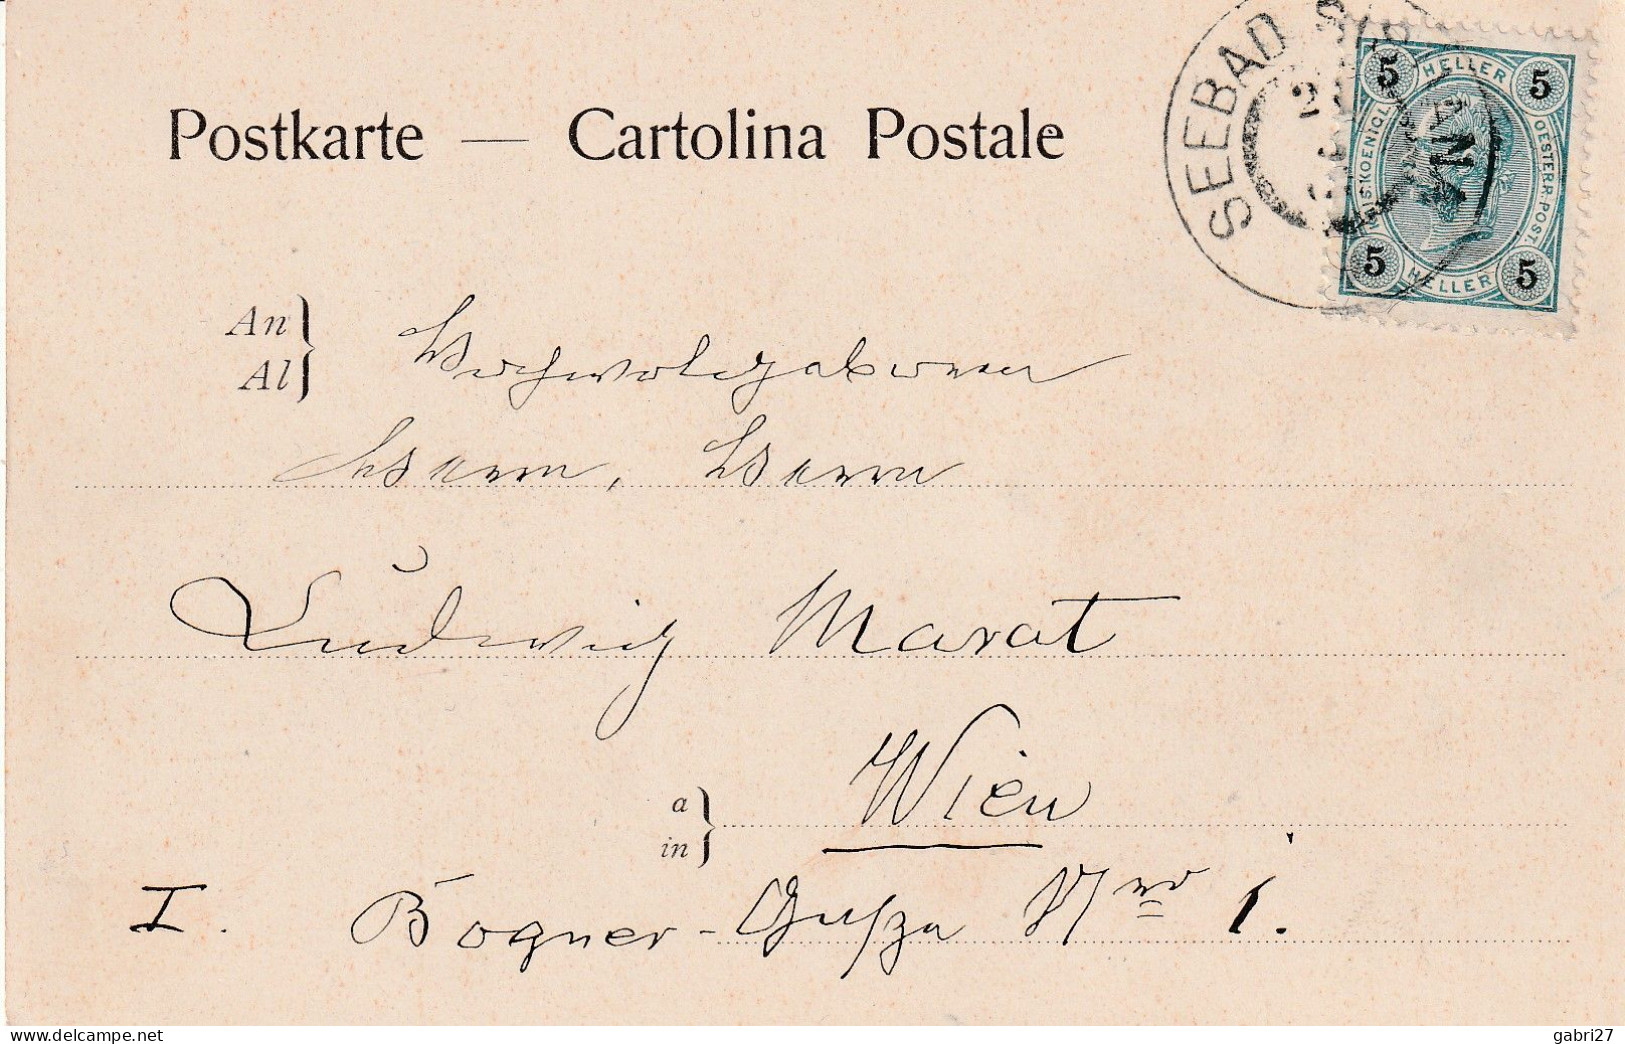 Postkarte — Cartolina Postale
SEEBAD
5 HELLER 5
KAIS.KOENIGL. OESTERR.POST.
5 HELLER 5
An
Al
Hochwohlgeboren
Herrn, Herrn
Ludwig Marat
a
in
Wien
I. Bogner-Gasse Nro 1.
gabri27
www.delcampe.net